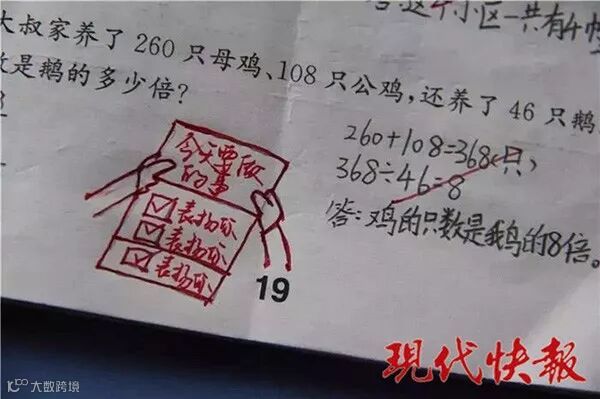 这个小区一共有4幢
大叔家养了 260 只母鸡、108 只公鸡,还养了 46 只鹅
数是鹅的多少倍?
260+108=368(只)
368÷46=8
答:鸡的只数是鹅的8倍。
今天要做
的事
表扬你
表扬你
表扬你
19
现代快報
大数跨境